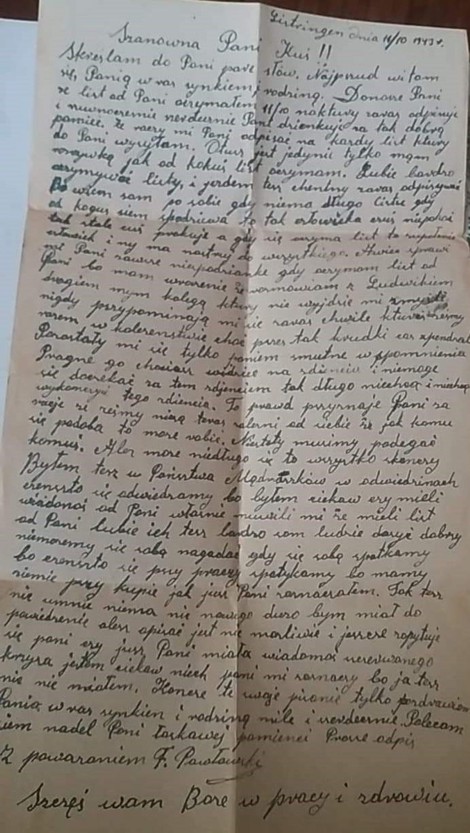 Listringen dnia 16/10 1943 r.
Szanowna Pani Kuś !!
Skreslam do Pani pare słów. Najprud witam
się, Panią w raz synkiem i rodziną. Donosze Pani
ze list od Pani otrzymałem 11/10 na ktury zaraz odpisuje
i ruwnoczesnie serdecznie Pani dzienkuje za tak dobrą
pamiec. że raczy mi Pani odpisac na kazdy list ktury
do Pani wysyłam. Otusz jest jedynie tylko mym
rozrywką jak od kokuś list otrzymam. Lubie bardzo
otrzymywać listy, i jezdem tesz chentny zaraz odpisywać
Bo wiem sam po sobie gdy niema długo
od kogus sie spodziewa to tak człowieka cuś niepokoi
tak stale cuś brakuje a gdy się otrzyma list to zupełnie
człowiek i ny ma nastruj do wszystkiego. A wiec sprawi
mi Pani zawsze niespodzianke gdy otrzymam list od
Pani bo mam wrazenie ze rozmawiam z Ludwikiem
drogiem mym kolegą ktury nie wyjdzie mi z mysli
nigdy przypominają mi się zaraz chwile
razem w kolezenstwie choc przes tak krudki czas spendzali
Pozostały mi się tylko potem smutne wspomnienia
Pragne go chociasz widziec na zdienciu i niemoge
sie doczekać za tem zdjenciem tak długo niechcą
wykonczyć tego zdienia. To prawd przyznaje Pani za
racje ze rejmy nizą teraz zalezni od ciebie że jak komu
się podoba to moze robic. Niestety musimy podegać
komuś. Ale moze niedługo się to wszystko skonczy
Byłem tesz w Państwa w odwiedzinach
czensto się odwiedzamy bo byłem ciekaw czy mieli
wiadomoś od Pani własnie muwili mi że mieli list
od Pani lubie ich tesz bardzo som ludzie dosyć dobry
niemozemy się sobą nagadać gdy się sobą spotkamy
bo czensto się przy pracy spotykamy bo mamy
ziemie przy kupie jak jusz Pani zaznaczałem. Tak tesz
nic umnie niema nic nowego duzo bym miał do
powiedzenie alesz opisać jest nie mozliwie i jeszcze zapytuje
się pani czy jusz Pani miała wiadomoś
krzysa jestem ciekaw niech pani mi zaznaczy bo ja tesz
nic nie miałem. Koncze te swoje pisanie tylko pozdrawiam
Panią w raz synkien i rodziną mile i serdecznie. Polecam
nadel Pani łaskawej pamienci Prosze odpis
Z powazaniem F. Pawłowski
Szczęś wam Boze w pracy i zdrowiu.